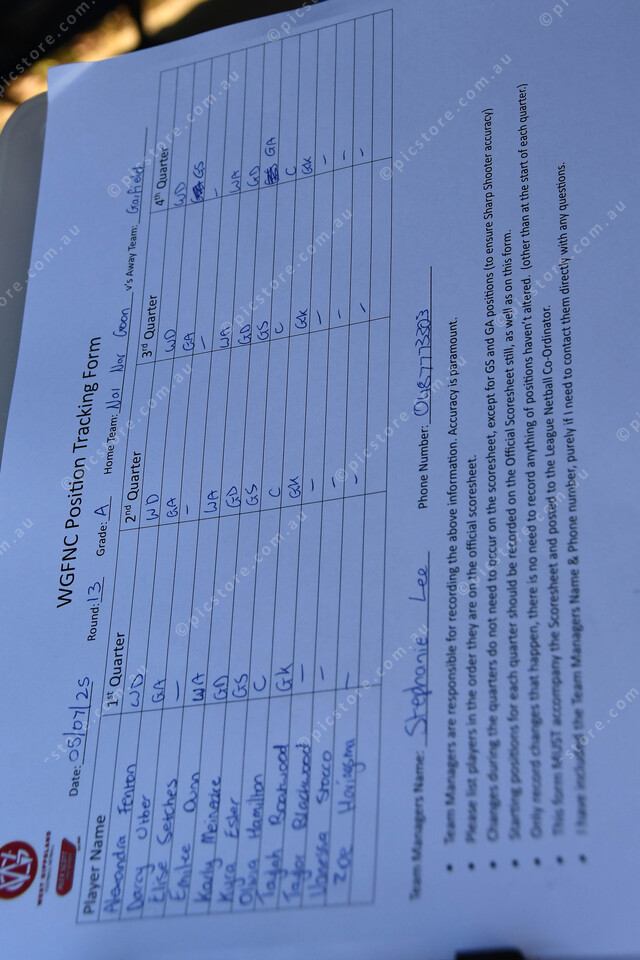 WGFNC Position Tracking Form
Date: 05/07/25 Round: 13 Grade: A Home Team: Nar Nar Goon v's Away Team: Garfield
Player Name 1st Quarter 2nd Quarter 3rd Quarter 4th Quarter
Alexandra Fenton WD WD WD WD
Darcy Utber GA GA GA GS
Elise Setches – – – –
Emilee Dunn WA WA WA WA
Karly Meinecke GD GD GD GD
Kyra Ester GS GS GS GA
Olivia Hamilton C C C C
Taylah Boatwood GK GK GK GK
Taylor Blackwood – – – –
Vanessa Stocco – – – –
Zoe – – – –
Team Managers Name: Stephanie Lee Phone Number: 0487773303
• Team Managers are responsible for recording the above information. Accuracy is paramount.
• Please list players in the order they are on the official scoresheet.
• Changes during the quarters do not need to occur on the scoresheet, except for GS and GA positions (to ensure Sharp Shooter accuracy)
• Starting positions for each quarter should be recorded on the Official Scoresheet still, as well as on this form.
• Only record changes that happen, there is no need to record anything of positions haven't altered. (other than at the start of each quarter.)
• This form MUST accompany the Scoresheet and posted to the League Netball Co-Ordinator.
• I have included the Team Managers Name & Phone number, purely if I need to contact them directly with any questions.
©picstore.com.au